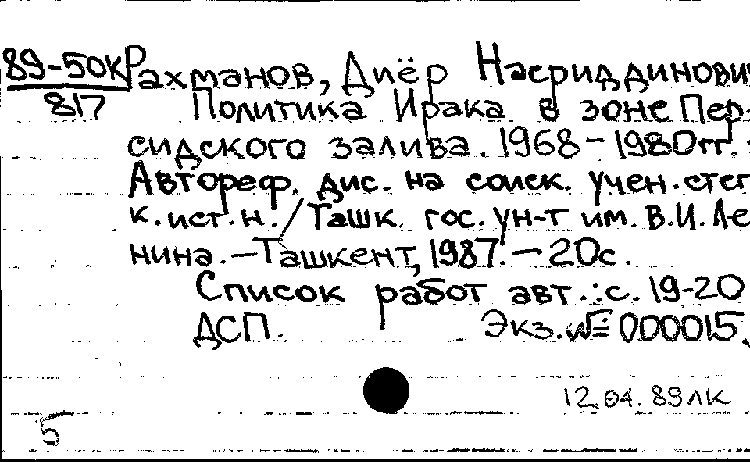 89-50к Рахманов, Диёр Насриддинови
817 Политика Ирака в зоне Пер-
сидского залива. 1968-1980гг.
Автореф. дис. на соиск. учен. степ
к.ист.н. / Ташк. гос. ун-т им. В.И. Ле
нина. - Ташкент, 1987. - 20с.
Список работ авт.: с. 19-20
ДСП. Экз. № 000015.
12.04.89 лк
5